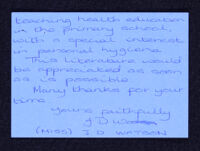 teaching health education
in the primary school,
with a special interest
in personal hygiene.
This literature would
be appreciated as soon
as is possible.
Many thanks for your
time.
Yours faithfully
J D Watson
(MISS) J D WATSON